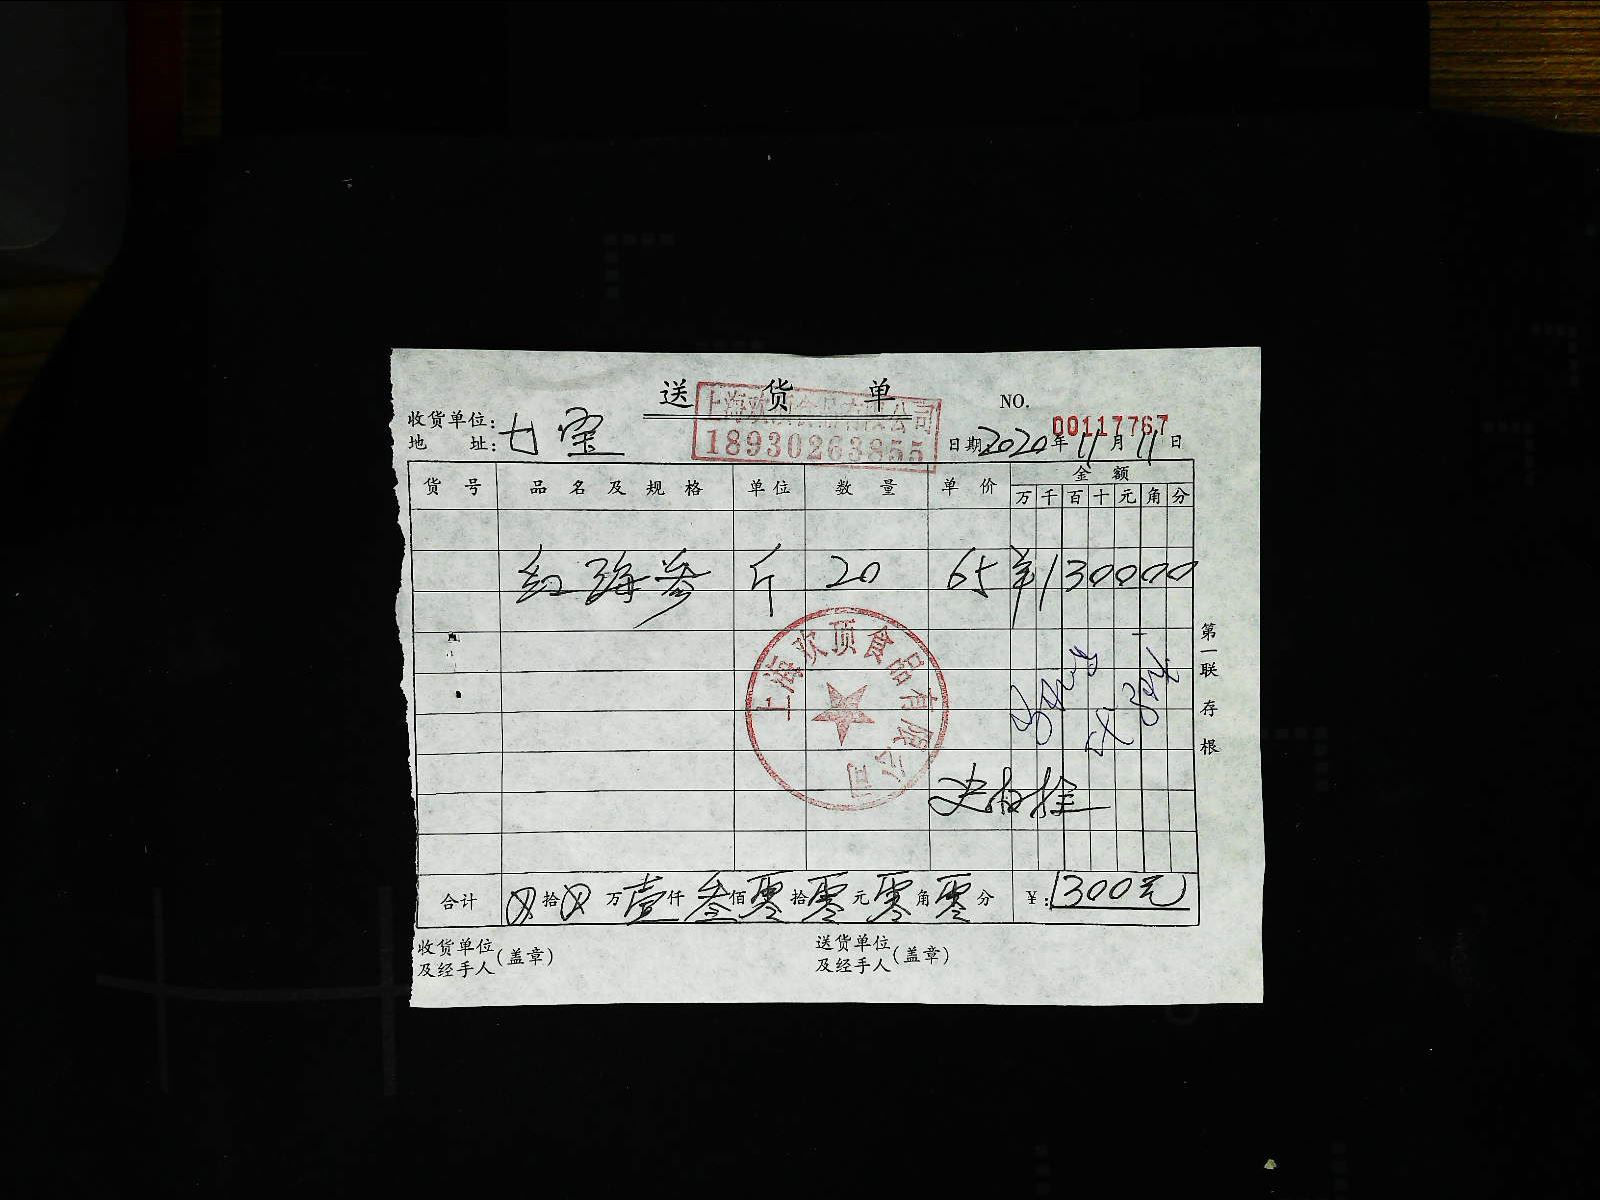 送货单
上海欢顶食品有限公司
18930263855
NO.
00117767
收货单位:
地址:
七宝
日期 2020年11月11日
货号 品名及规格 单位 数量 单价 金额
万 千 百 十 元 角 分
红海参 斤 20 65 ¥130000
上海欢顶食品有限公司
第一联存根
合计 ⊗拾⊗万壹仟叁佰零拾零元零角零分 ¥:1300元
收货单位
及经手人(盖章)
送货单位
及经手人(盖章)